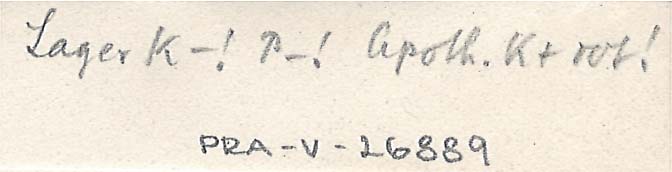 Lager K-! P-! Apoth. K+ rot!
PRA-V-26889